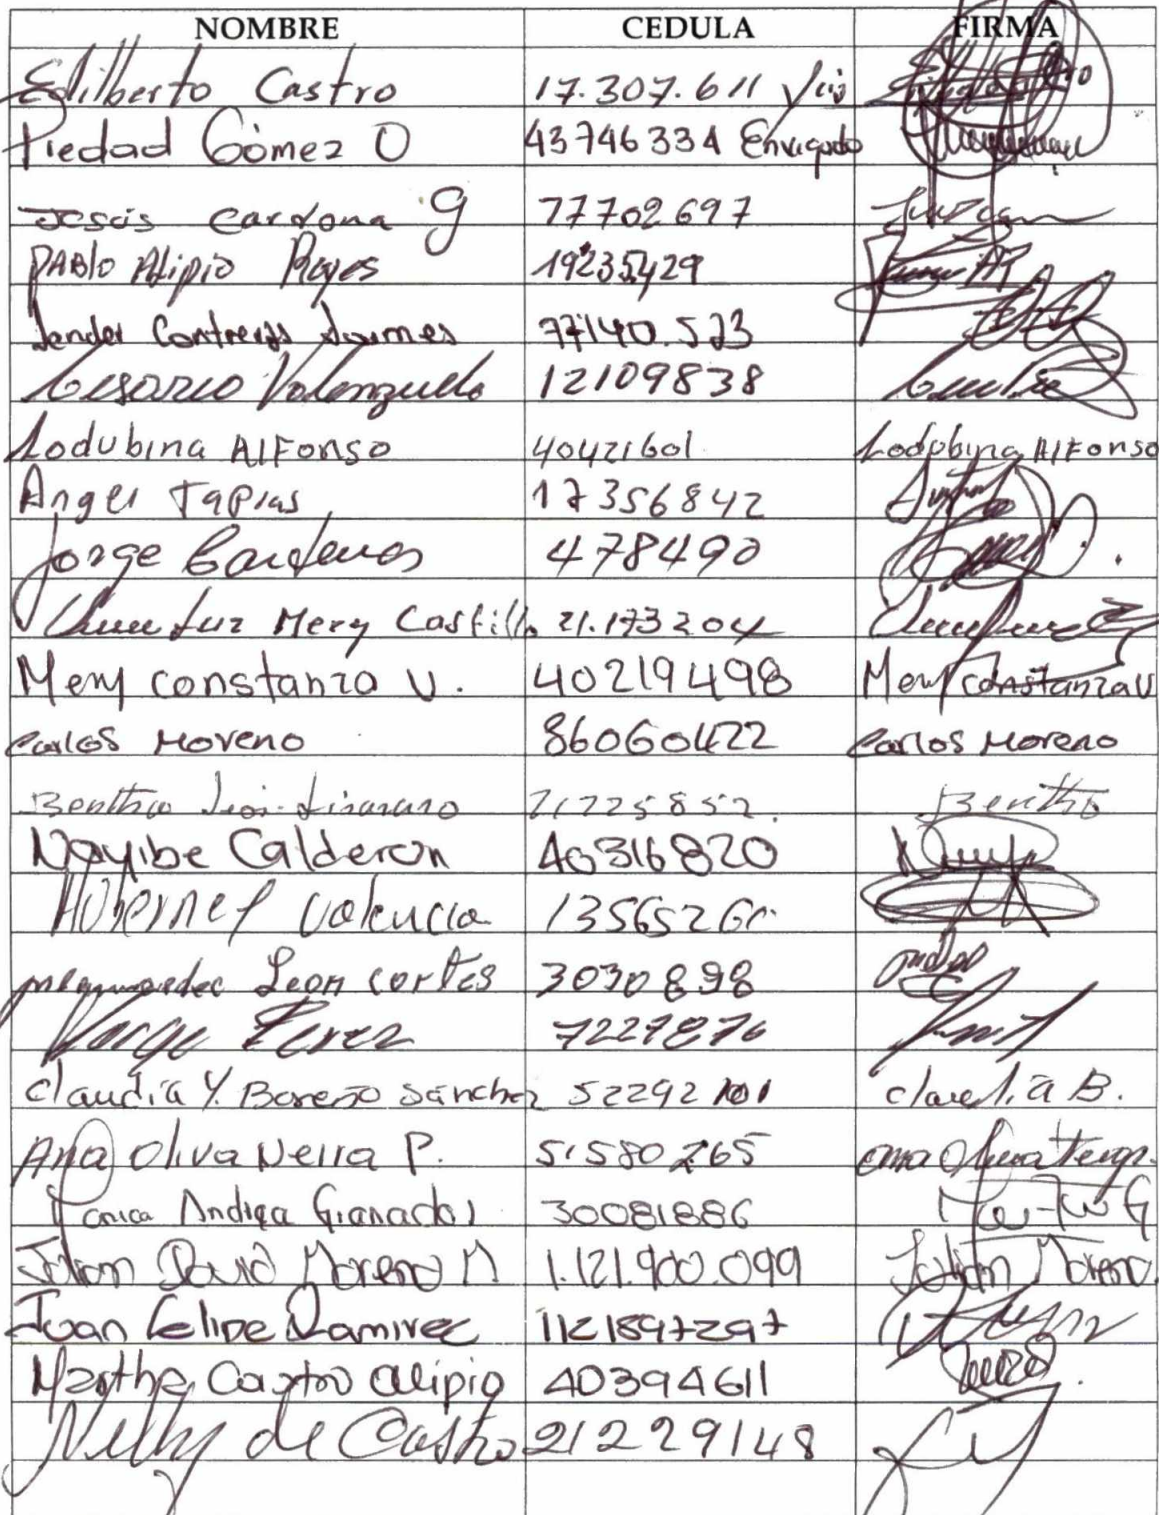 NOMBRE CEDULA FIRMA
Edilberto Castro 17.307.611 V/cio
Piedad Gómez O 43746334 Envigado
Jesús Cardona G 77702697
PABlo Alipio Reyes 19235429
Jender Contreras 77140.523
Cesareo Valenzuela 12109838
Lodubina AlFonso 40421601 Lodubina AlFonso
Angel Tapias 17356842
Jorge Cardenas 478490
Luz Mery Castillo 21.173204
Mery constanza V. 40219498 Mery constanza V
Carlos Moreno 86060422 Carlos Moreno
Nayibe Calderon 40316820
Hubernel Valencia 1356526
Leon cortes 3030898
Jorge Perez
Claudia Y. Boreno Sánchez 52292101 Claudia B.
Ana Oliva Neira P. 51580265
Andrea Granados 30081886
Julian David Moreno M 1.121.900.099 Julian Moreno
Juan Felipe Ramirez 1121897297
Martha Castro Alipio 40394611
Nelly de Castro 21229148